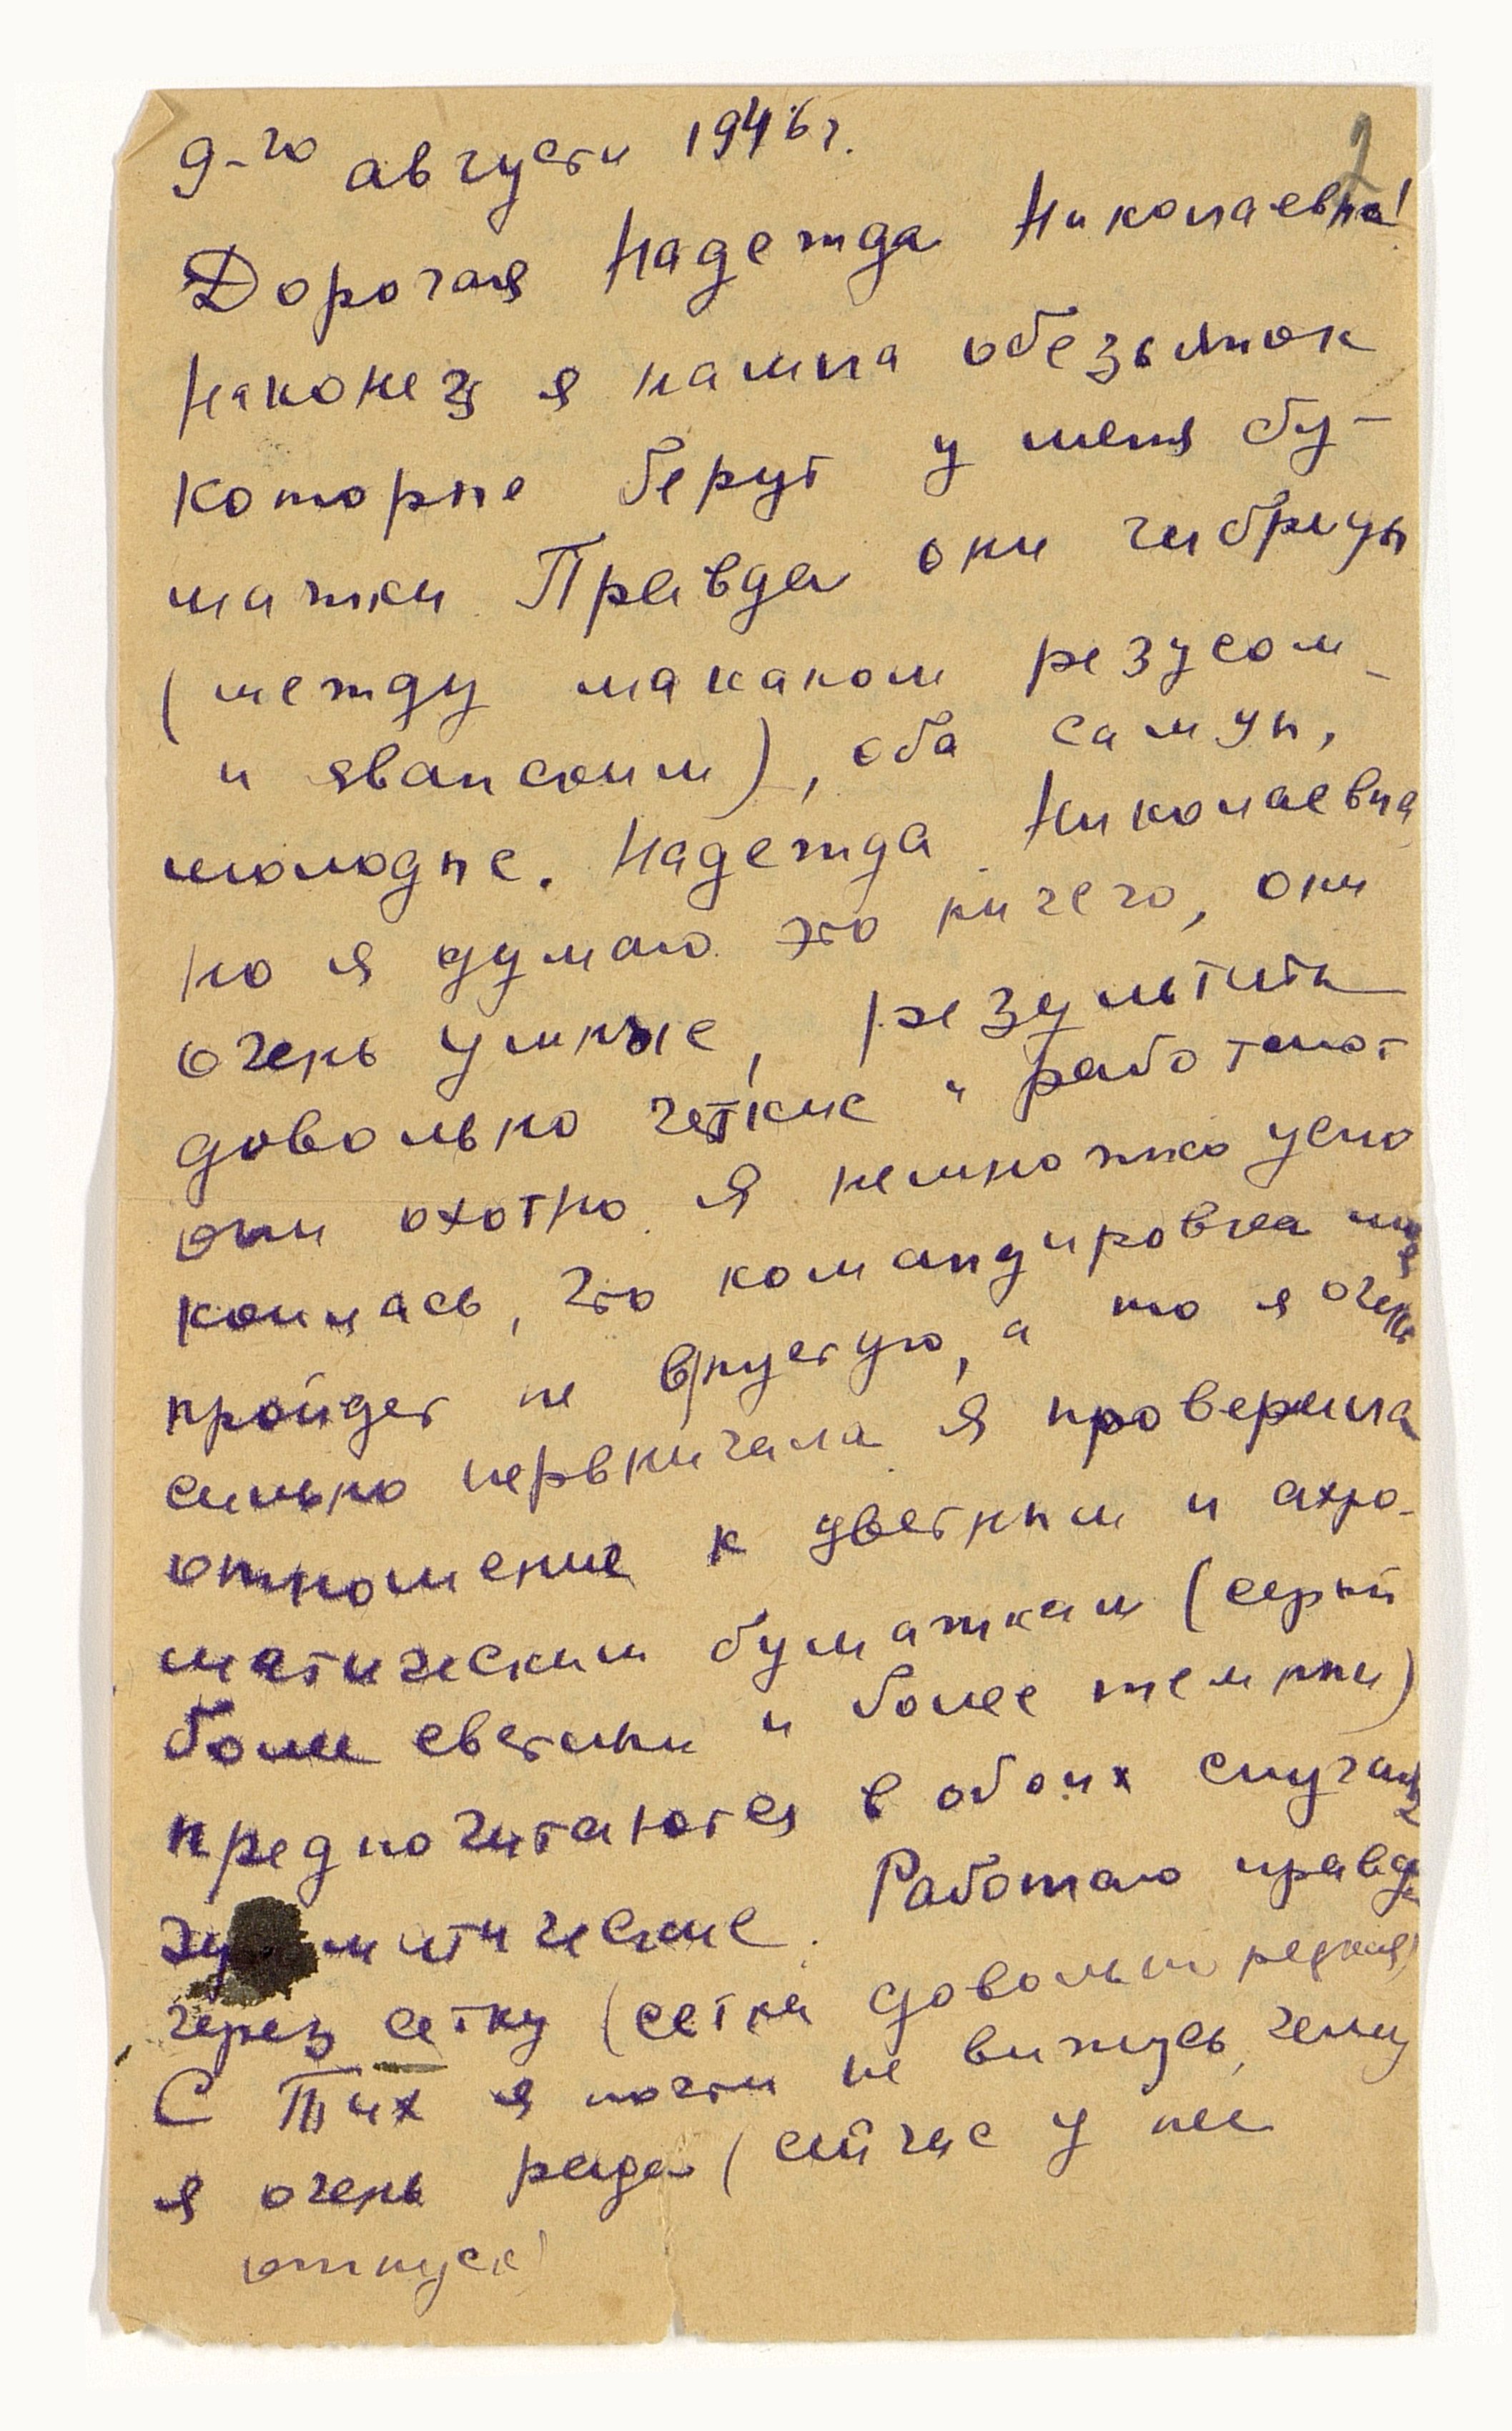 2
9-го августа 1946 г.
Дорогая Надежда Николаевна!
Наконец я нашла обезьянок
которые берут у меня бу-
мажки. Правда они гибриды
(между макаком резусом
и яванским), оба самцы,
молодые. Надежда Николаевна
но я думаю это ничего, они
очень умные, результаты
довольно четкие и работают
они охотно. Я немножко успо
коилась, что командировка моя
пройдет не впустую, а то я очень
сильно нервничала. Я проверила
отношение к цветным и ахро-
матическим бумажкам (серый
более светлый и более темный)
предпочитаются в обоих случаях
хроматические. Работаю правда
через сетку (сетка довольно редкая)
С Тих я почти не вижусь, чему
я очень рада (сейчас у нее
отпуск)